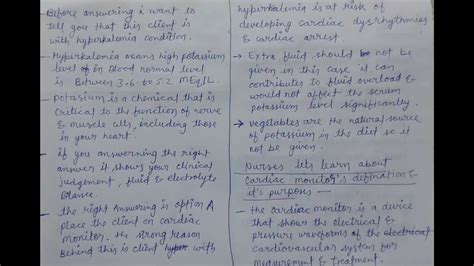 - Before answering i want to
tell you that this client is
with hyperkalemia condition.
- Hyperkalemia means high potassium
level of in blood normal level
is Between 3.6 to 5.2 mEq/L.
- Potassium is a chemical that is
critical to the function of nerve
& muscle cells, including those
in your heart.
- if you answerning the right
answer it shows your clinical
judgement, fluid & electrolyte
Balance.
- the right Answering is option A
place the client on cardiac
monitor. the strong reason
Behind this is client with
hyperkalemia is at risk of
developing cardiac dysrhythmias
& cardiac arrest
→ Extra fluid should not be
given in this case it can
contributes to fluid overload &
would not affect the serum
potassium level significantly.
→ vegetables are the natural source
of potassium in the diet so it
not be given.
Nurses lets learn about
Cardiac monitor's defination &
it's purposes —
- the cardiac monitor is a device
that show the electrical &
pressure waveforms of the electrical
Cardiovascular system for
Measurement & treatment.